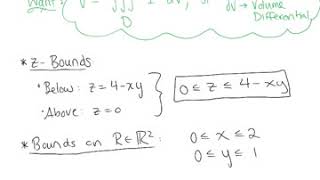 Want: V = ∭ 1 dV, or dV → Volume
D Differential
* z- Bounds
• Below: z = 4-xy
• Above: z = 0
0 ≤ z ≤ 4-xy
* Bounds on R ∈ ℝ²: 0 ≤ x ≤ 2
0 ≤ y ≤ 1